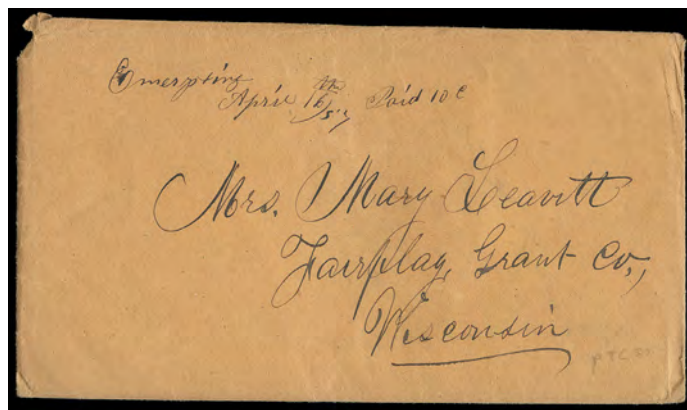 April 16th /57 Paid 10 c
Mrs. Mary Leavitt
Fairplay, Grant Co.,
Wisconsin